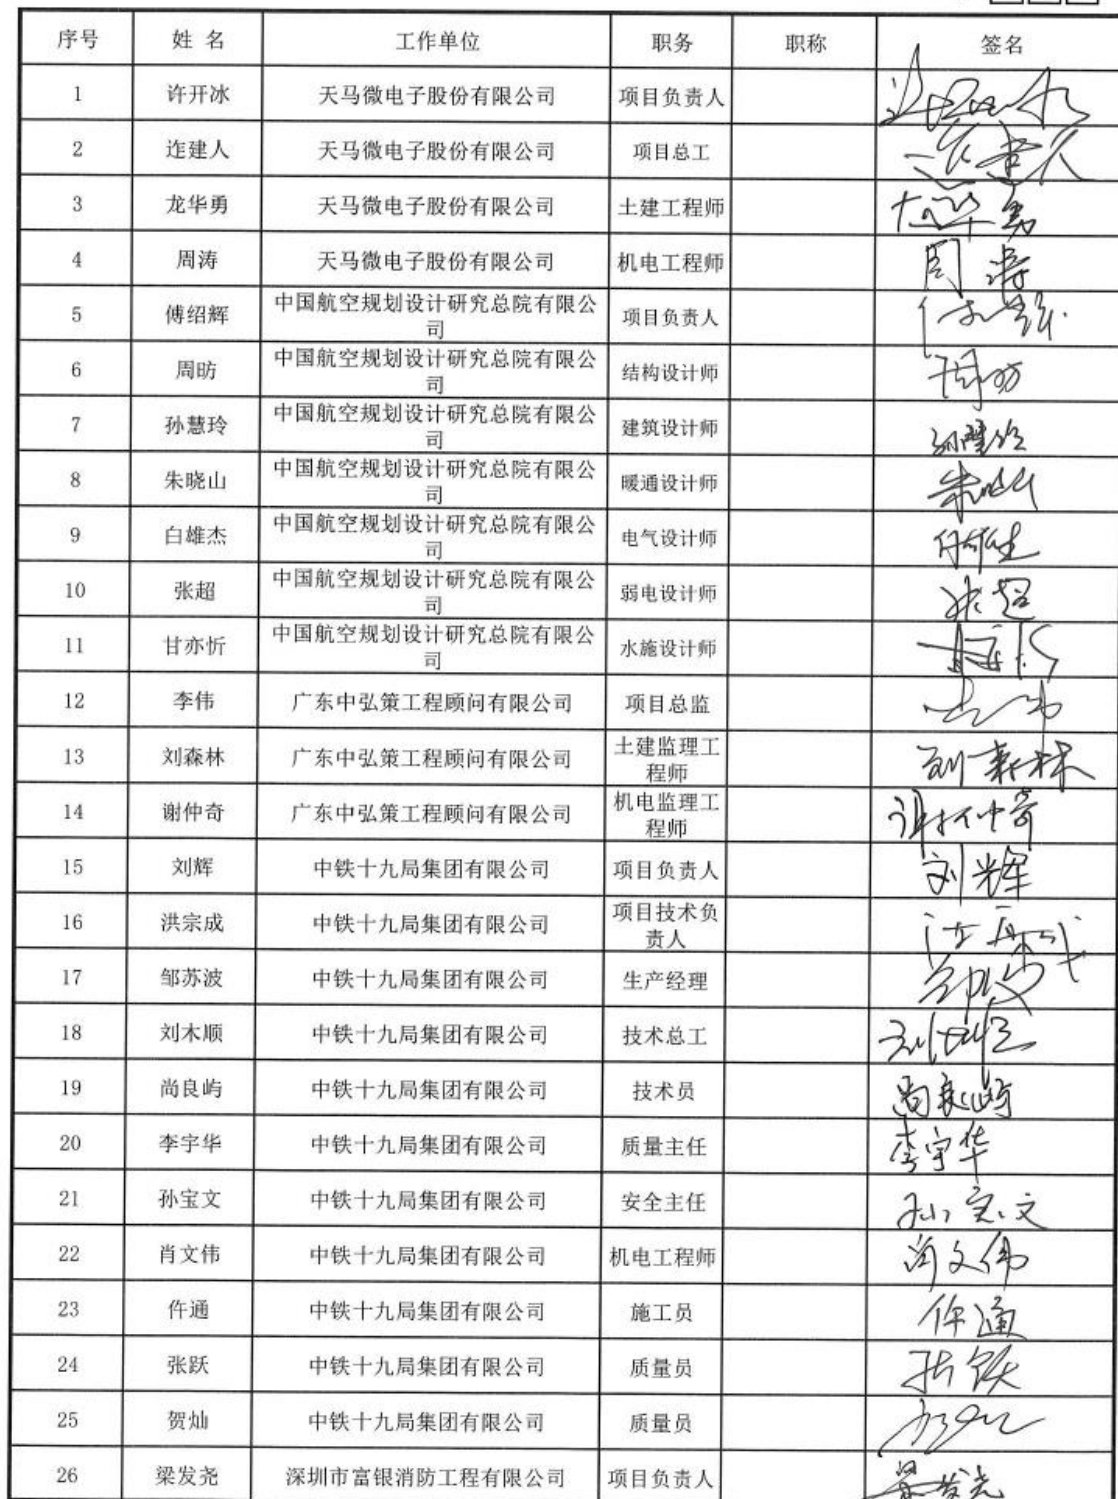 序号 姓 名 工作单位 职务 职称 签名
1 许开冰 天马微电子股份有限公司 项目负责人
2 迮建人 天马微电子股份有限公司 项目总工
3 龙华勇 天马微电子股份有限公司 土建工程师 龙华勇
4 周涛 天马微电子股份有限公司 机电工程师 周涛
5 傅绍辉 中国航空规划设计研究总院有限公
司 项目负责人
6 周昉 中国航空规划设计研究总院有限公
司 结构设计师 周昉
7 孙慧玲 中国航空规划设计研究总院有限公
司 建筑设计师
8 朱晓山 中国航空规划设计研究总院有限公
司 暖通设计师
9 白雄杰 中国航空规划设计研究总院有限公
司 电气设计师
10 张超 中国航空规划设计研究总院有限公
司 弱电设计师 张超
11 甘亦忻 中国航空规划设计研究总院有限公
司 水施设计师
12 李伟 广东中弘策工程顾问有限公司 项目总监
13 刘森林 广东中弘策工程顾问有限公司 土建监理工
程师 刘森林
14 谢仲奇 广东中弘策工程顾问有限公司 机电监理工
程师 谢仲奇
15 刘辉 中铁十九局集团有限公司 项目负责人 刘辉
16 洪宗成 中铁十九局集团有限公司 项目技术负
责人
17 邹苏波 中铁十九局集团有限公司 生产经理
18 刘木顺 中铁十九局集团有限公司 技术总工
19 尚良屿 中铁十九局集团有限公司 技术员 尚良屿
20 李宇华 中铁十九局集团有限公司 质量主任 李宇华
21 孙宝文 中铁十九局集团有限公司 安全主任 孙宝文
22 肖文伟 中铁十九局集团有限公司 机电工程师 肖文伟
23 仵通 中铁十九局集团有限公司 施工员 仵通
24 张跃 中铁十九局集团有限公司 质量员 张跃
25 贺灿 中铁十九局集团有限公司 质量员
26 梁发尧 深圳市富银消防工程有限公司 项目负责人 梁发尧